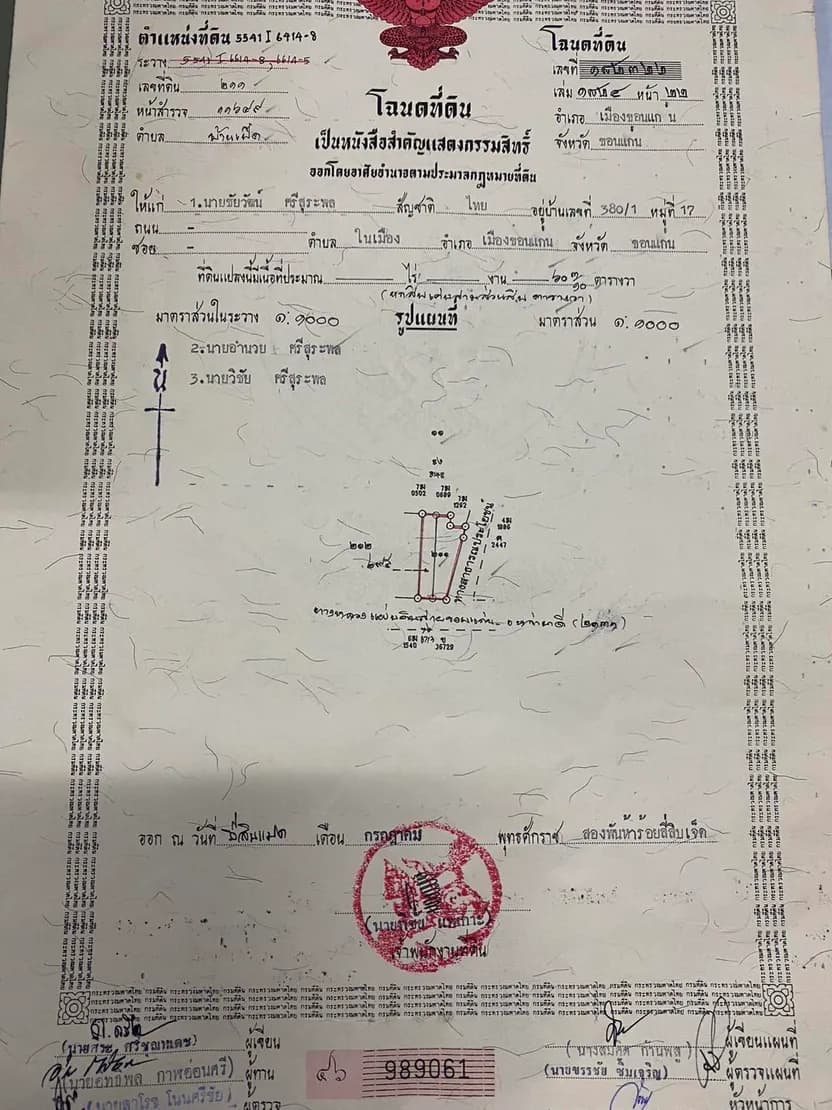 ตำแหน่งที่ดิน 5541 I 6414-8
ระวาง 5541 I 6614-8, 6614-5
เลขที่ดิน ๒๑๑
หน้าสำรวจ ๑๑๖๔๙
ตำบล บ้านเป็ด
โฉนดที่ดิน
เลขที่ ๑๙๒๓๒๒
เล่ม ๑๙๒๔ หน้า ๒๒
อำเภอ เมืองขอนแก่น
จังหวัด ขอนแก่น
โฉนดที่ดิน
เป็นหนังสือสำคัญแสดงกรรมสิทธิ์
ออกโดยอาศัยอำนาจตามประมวลกฎหมายที่ดิน
ให้แก่ 1.นายชัยวัฒน์ ศรีสุระพล สัญชาติ ไทย อยู่บ้านเลขที่ 380/1 หมู่ที่ 17
ถนน -
ซอย - ตำบล ในเมือง อำเภอ เมืองขอนแก่น จังหวัด ขอนแก่น
ที่ดินแปลงนี้มีเนื้อที่ประมาณ ไร่ งาน ๖๐ ๓/๑๐ ตารางวา
(หกสิบเศษสามส่วนสิบ ตารางวา)
มาตราส่วนในระวาง ๑:๑๐๐๐ รูปแผนที่ มาตราส่วน ๑:๑๐๐๐
2.นายอำนวย ศรีสุระพล
3.นายวิชัย ศรีสุระพล
น
๑๑
7มม
0502
7มม
0699
7มม
1262
2447
๒๑๒
๒๑๑
ทางสาธารณประโยชน์
1540
36729
ออก ณ วันที่ ยี่สิบแปด เดือน กรกฎาคม พุทธศักราช สองพันห้าร้อยสี่สิบเจ็ด
เจ้าพนักงานที่ดิน
ผู้เขียน
ผู้ทาน
ผู้ตรวจ
989061
ผู้เขียนแผนที่
ผู้ตรวจแผนที่
หัวหน้าการ